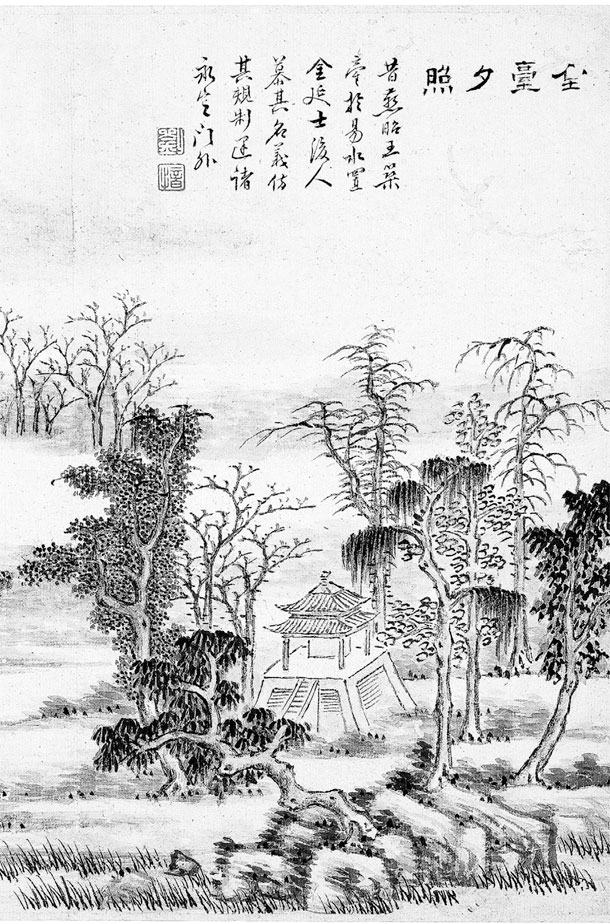 金臺夕照
昔燕昭王築
臺於易水置
金延士後人
慕其名義仿
其規制建諸
永定門外
劉
愔